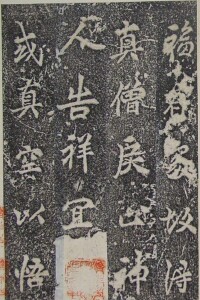 福家故得
真僧戾止神
人告祥宜
或真空以悟